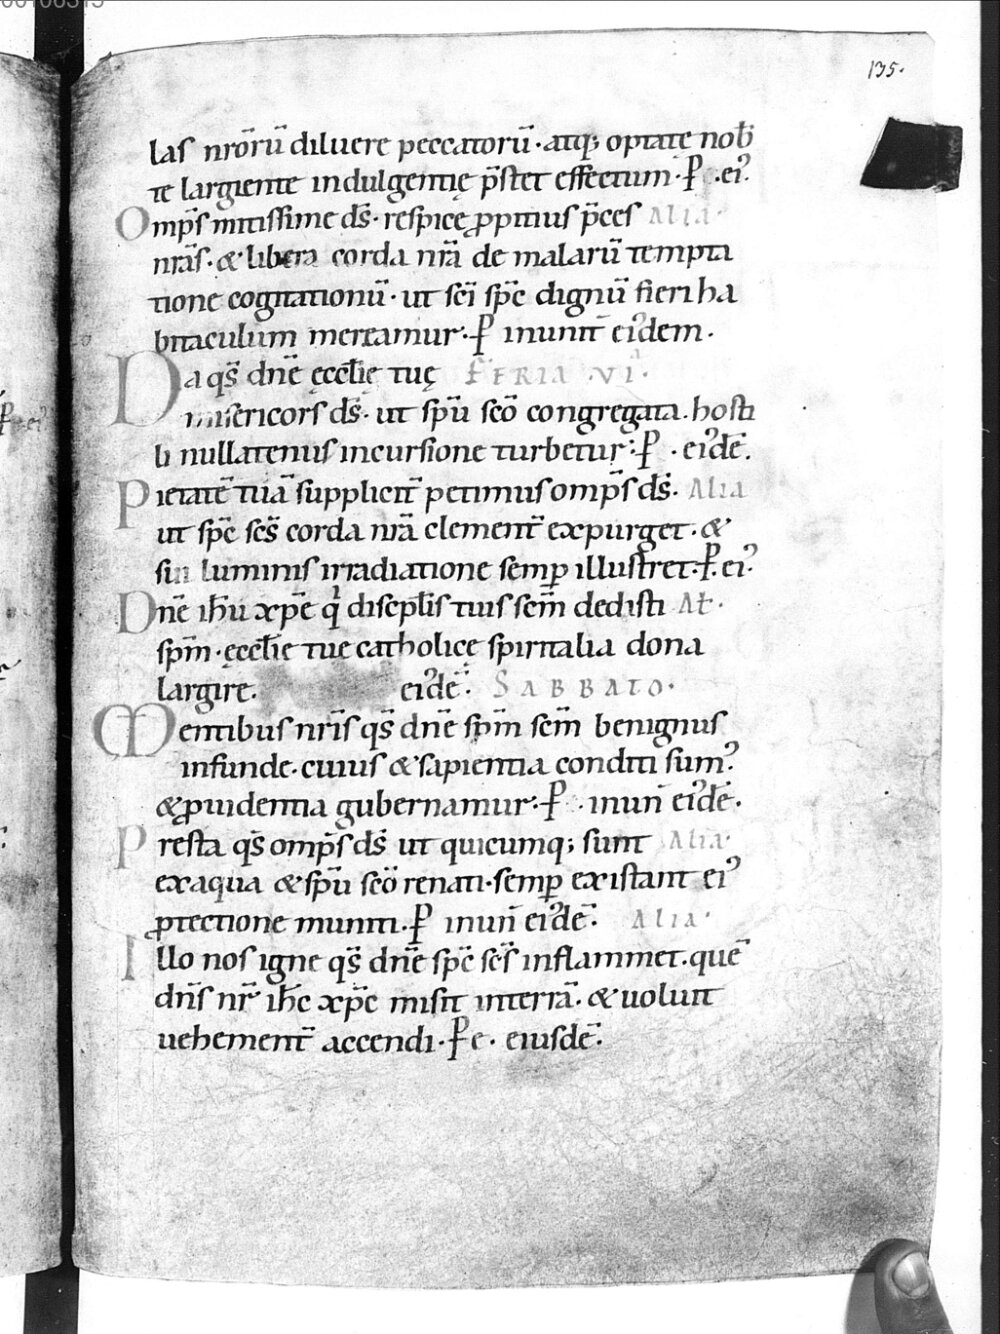 135.
las nr̄orū diluere peccatorū· atq; optatę nob̄
te largiente indulgentię p̄stet effectum· P̄ · ei᾽.
Omp̄s mitissime ds̄· respice ꝓpitius p̄ces Alia·
nrās· & libera corda nrā de malarū tempta
tione cogitationū· ut sc̄i sp̄c dignū fieri ha
bitaculum mereamur· P̄ inunit̄ ei᾽dem·
Da qs̄ dnē ęccłię tuę FERIA ·VI·
misericors ds̄· ut sp̄u sc̄o congregata· hosti
li nullatenus incursione turbetur· P̄ · ei᾽dē.
Pietatē tuā supplicit̄ petimus omp̄s ds̄· Alia
ut sp̄c sc̄s corda nrā clement̄ expurget· &
sui luminis irradiatione semp̄ illustret· P̄. ei᾽.
Dnē ih̄u xp̄e qͥ discipłis tuis sc̄m dedisti Ał·
sp̄m· ęccłie tue catholicę spiritalia dona
largire. ei᾽dē· SABBATO·
Mentibus nrīs qs̄ dnē sp̄m sc̄m benignus
infunde· cuius & sapientia conditi sum᾽·
& ꝓuidentia gubernamur· P̄ · inun̄ ei᾽dē·
Presta qs̄ omp̄s ds̄ ut quicumq; sunt Alia·
ex aqua & sp̄u sc̄o renati· semp̄ existant ei᾽
ꝓtectione muniti· P̄ inun̄ ei᾽dē· Alia·
Illo nos igne qs̄ dnē sp̄c sc̄s inflammet· quē
dn̄s nr̄ ih̄c xp̄c misit interrā· & uoluit
uehement̄ accendi· P̄ c· eiusdē·